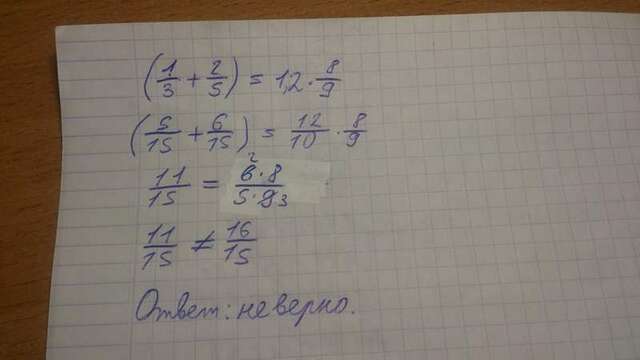 (1/3 + 2/5) = 1,2 · 8/9
(5/15 + 6/15) = 12/10 · 8/9
11/15 = 6² · 8 / 5 · 9₃
11/15 ≠ 16/15
Ответ: неверно.